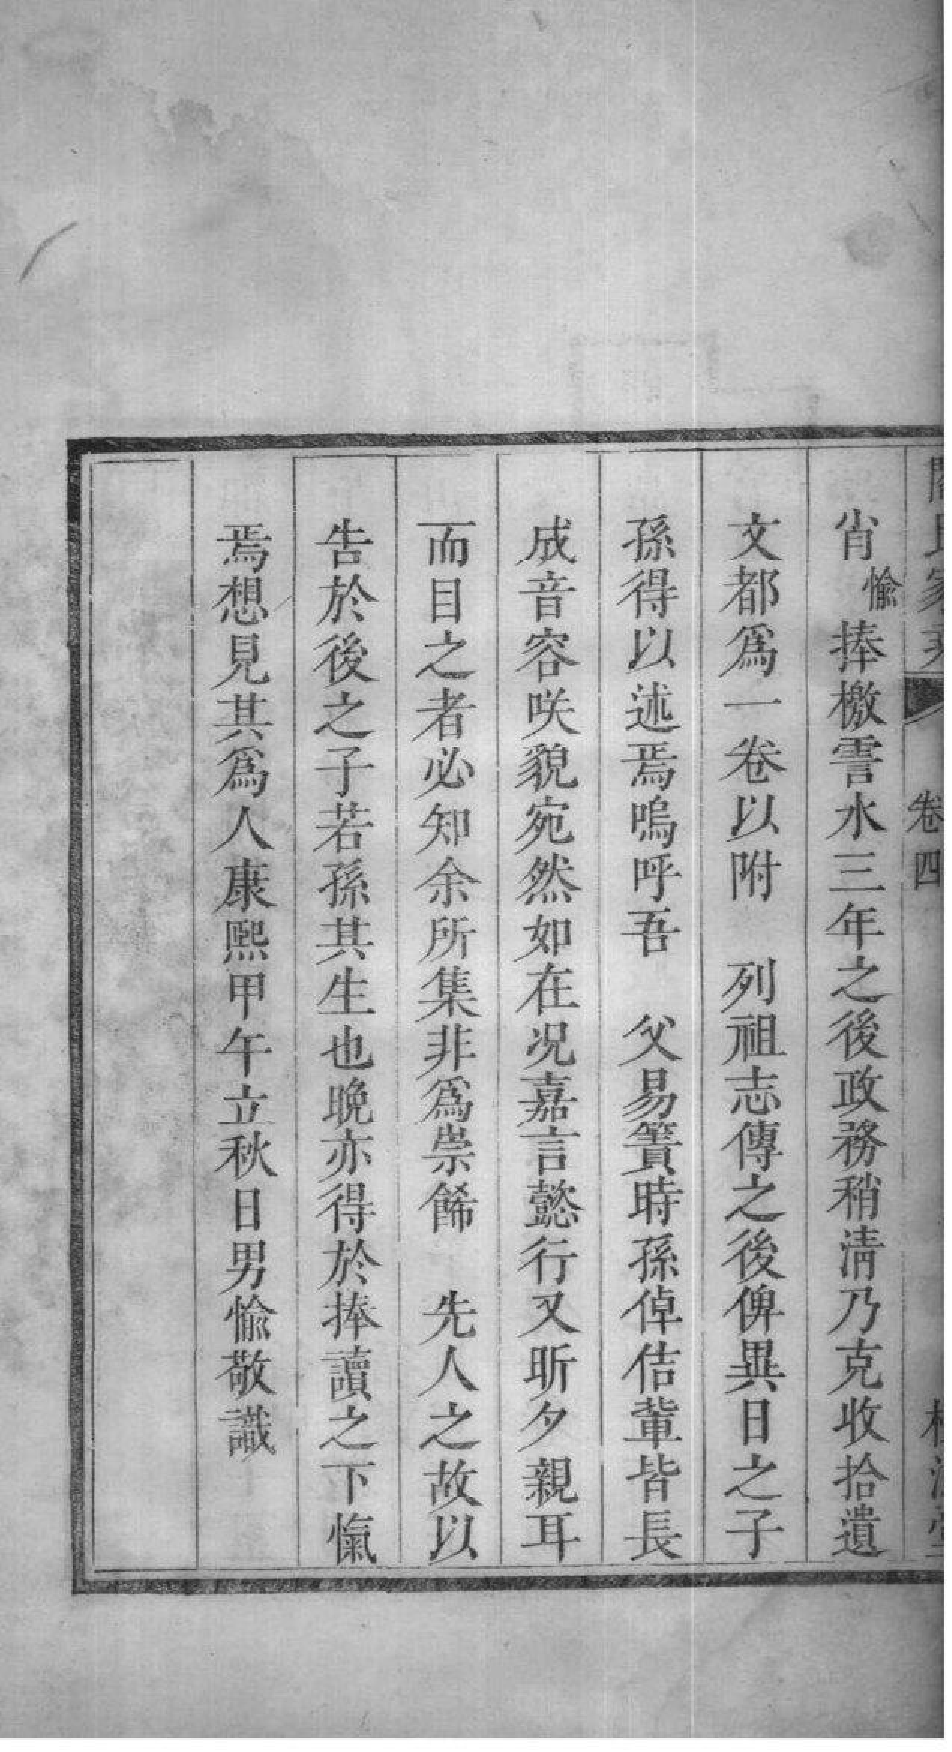 卷四
肖愉捧檄霅水三年之後政務稍清乃克收拾遺
文都爲一卷以附　列祖志傳之後俾異日之子
孫得以述焉嗚呼吾　父易簀時孫倬佶輩皆長
成音容咲貌宛然如在况嘉言懿行又昕夕親耳
而目之者必知余所集非爲崇餙　先人之故以
告於後之子若孫其生也晚亦得於捧讀之下愾
焉想見其爲人康熙甲午立秋日男愉敬識